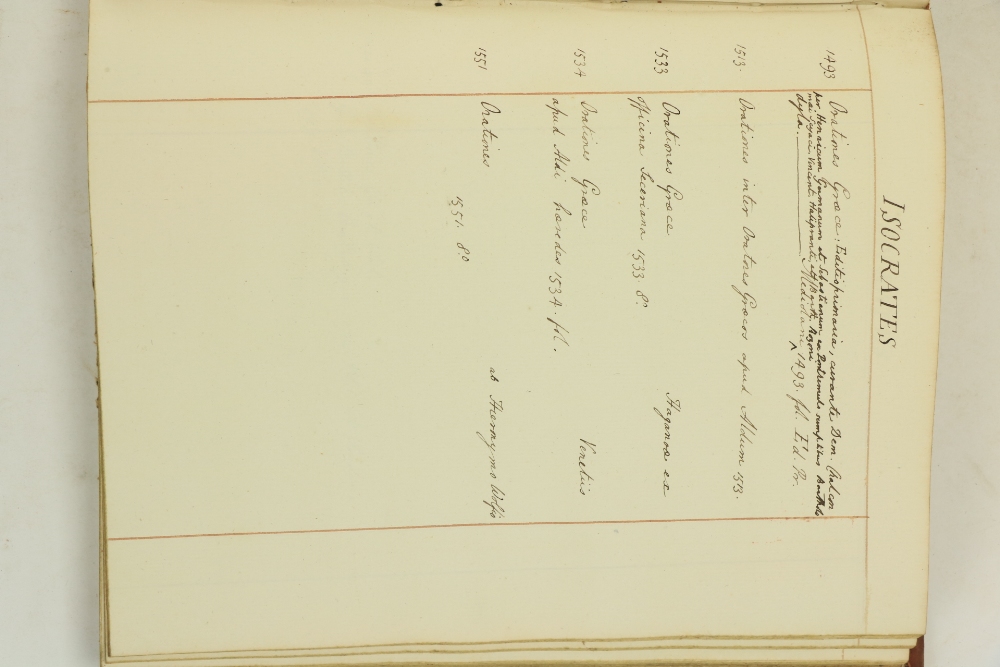 ISOCRATES
1493 Orationes Græce. Editio primaria, curante Dem. Chalcon
dyla.
per Henricum Germanum et Sebastianum ex Pontremulo sumptibus Barthol
mæi Vincenti Alipranti, et
Mediolani 1493. fol. Ed. Pr.
1513. Orationes inter Oratores Græcos apud Aldum 1513.
1533 Orationes Græce Haganoæ ex
officina Seceriana 1533. 8o.
1534 Orationes Græce Venetiis
apud Aldi hæredes 1534. fol.
1551 Orationes ab Hieronymo Wolfio
1551. 8o